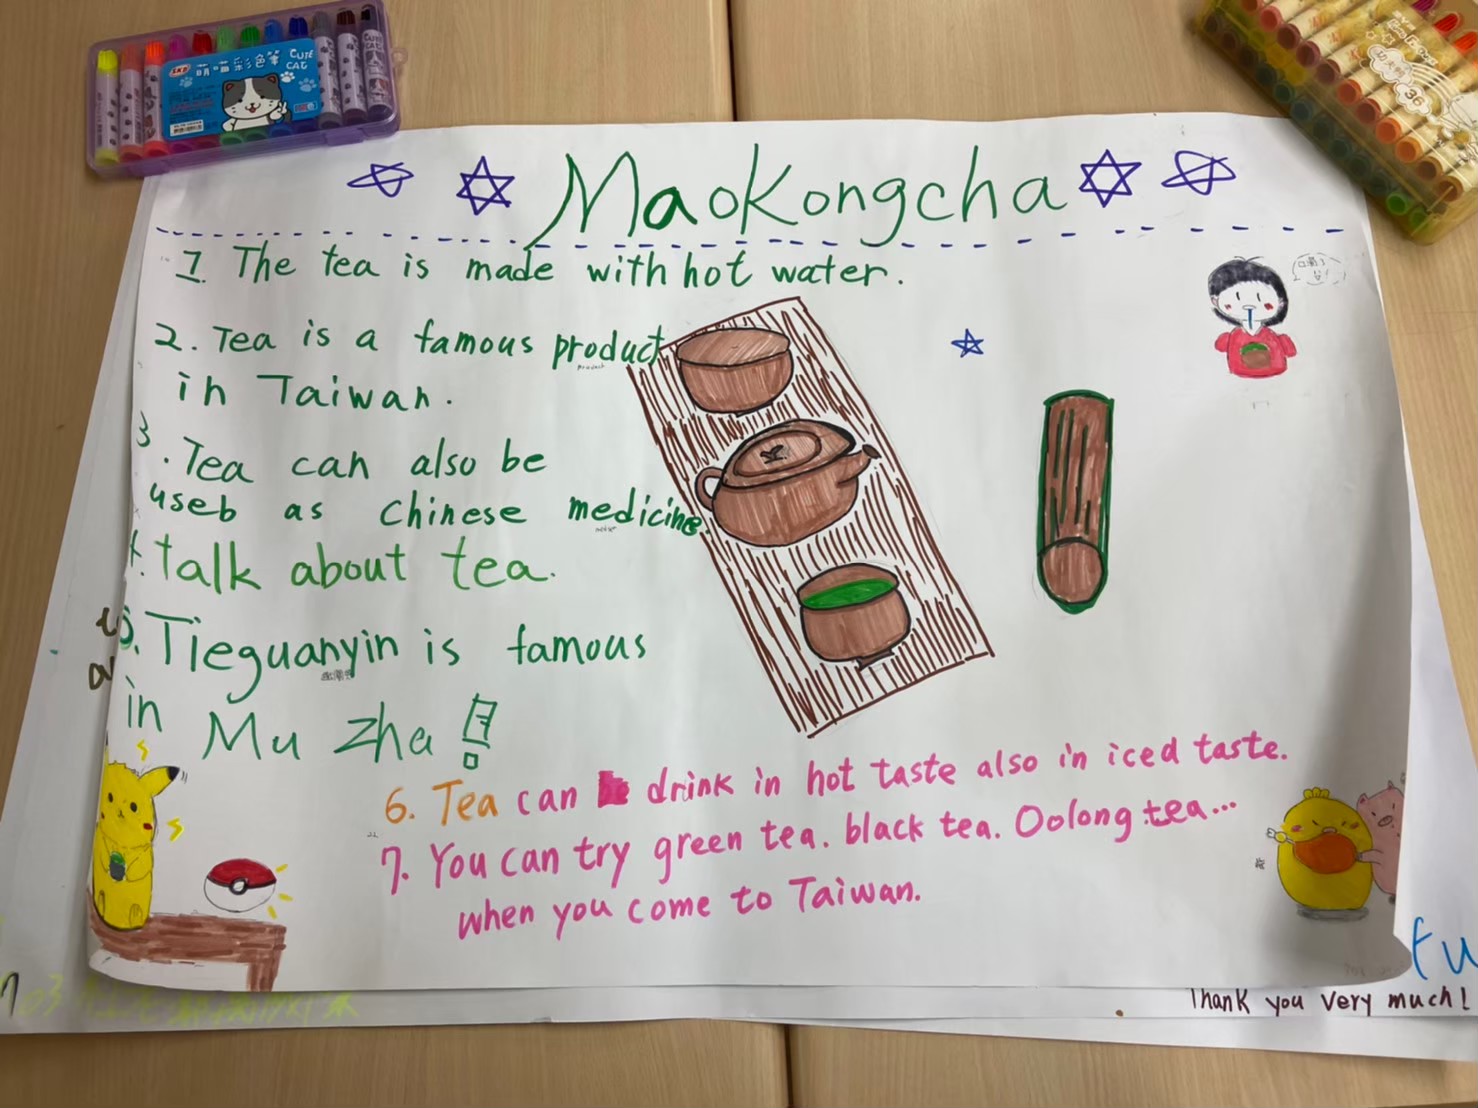 萌喵彩色筆
CUTE CAT
36
Maokongcha
1. The tea is made with hot water.
2. Tea is a famous product
in Taiwan.
3. Tea can also be
useb as chinese medicine.
4. talk about tea.
5. Tieguanyin is famous
in Mu zha!
6. Tea can drink in hot taste also in iced taste.
7. You can try green tea. black tea. Oolong tea...
when you come to Taiwan.
Thank you very much!